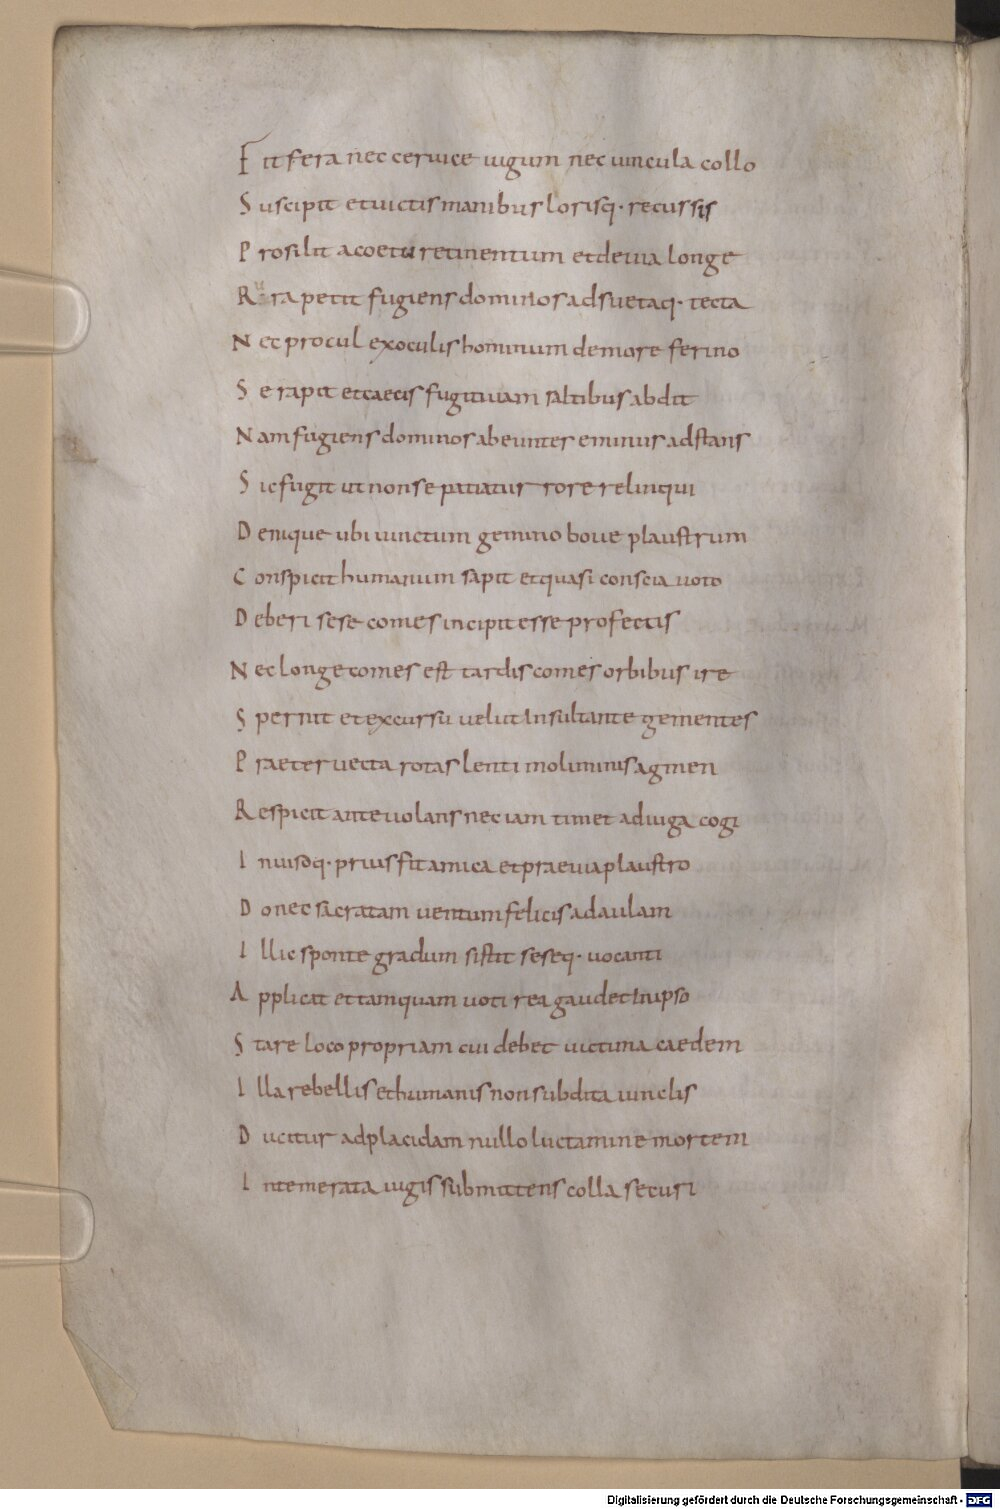 Fit fera nec ceruice iugum nec uincula collo
Suscipit et uictis manibus lorisq· recussis
Prosilit a coetu retinentum et deuia longe
Rura petit fugiens dominos adsuetaq· tecta
Nec procul ex oculis hominum de more ferino
Se rapit et caecis fugitiuam saltibus abdit
Nam fugiens dominos abeuntes eminus adstans
Sic fugit ut non se patiatur rore relinqui
Denique ubi iunctum gemino boue plaustrum
Conspicit humanum sapit et quasi conscia uoto
Deberi sese comes incipit esse profectis
Nec longe comes est tardis comes orbibus ire
Spernit et excursu uelut insultante gementes
Praeteruecta rotas lenti moliminis agmen
Respicit ante uolans nec iam timet ad iuga cogi
Inuisoq· prius fit amica et praeuia plaustro
Donec sacratam uentum felicis ad aulam
Illic sponte gradum sistit seseq· uocanti
Applicat et tamquam uoti rea gaudet in ipso
Stare loco propriam cui debet uictima caedem
Illa rebellis et humanis non subdita iunclis
Ducitur ad placidam nullo luctamine mortem
Intemerata iugis submittens colla securi
Digitalisierung gefördert durch die Deutsche Forschungsgemeinschaft - DFG